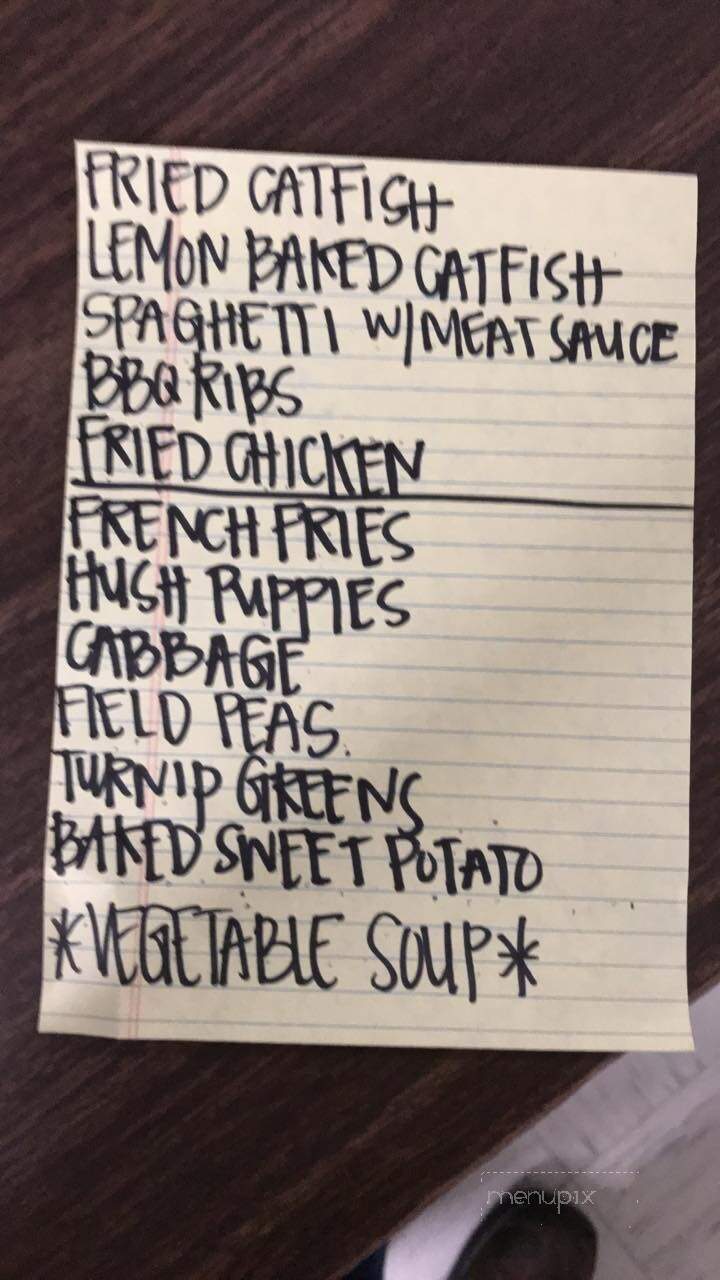 FRIED CATFISH
LEMON BAKED CATFISH
SPAGHETTI W/MEAT SAUCE
BBQ RIBS
FRIED CHICKEN
FRENCH FRIES
HUSH PUPPIES
CABBAGE
FIELD PEAS.
TURNIP GREENS
BAKED SWEET POTATO
*VEGETABLE SOUP*
menupix